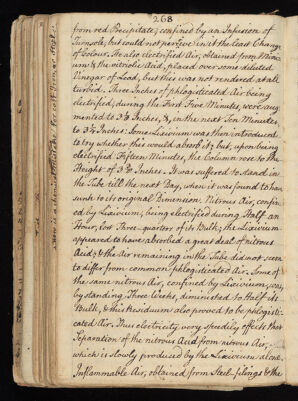 268
from red Precipitate, confined by an Infusion of
Turnsole, but could not perceive in it the least Change
of Colour. He also electrified Air, obtained from Mercu-
um & the nitrous Acid, placed over some diluted
Vinegar of Lead, but this was not rendered at all
turbid. Three Inches of phlogisticated Air being
electrified, during the First Five Minutes, were aug-
mented to 3 Inches, &, in the next Ten Minutes
to 3 Inches. Some Lixivium was then introduced
to try whether this would absorb it; but, upon being
electrified Fifteen Minutes, the Column rose to the
Height of 3 Inches. It was suffered to stand in
the Tube till the next Day, when it was found to have
sunk to its original Dimension. Nitrous Air, confin-
ed by Lixivium, being electrified during Half an
Hour, lost Three-quarters of its Bulk; the Lixivium
appeared to have absorbed a great deal of nitrous
Acid; & the Air remaining in the Tube did not seem
to differ from common phlogisticated Air. Some of
the same nitrous Air, confined by Lixivium, was,
by standing Three Weeks, diminished to Half its
Bulk, & this Residuum also proved to be phlogisti-
cated Air. Thus electricity very speedily effects that
Separation of the nitrous Acid from nitrous Air,
which is slowly produced by the Lixivium alone.
Inflammable Air, obtained from Steel-filings & the